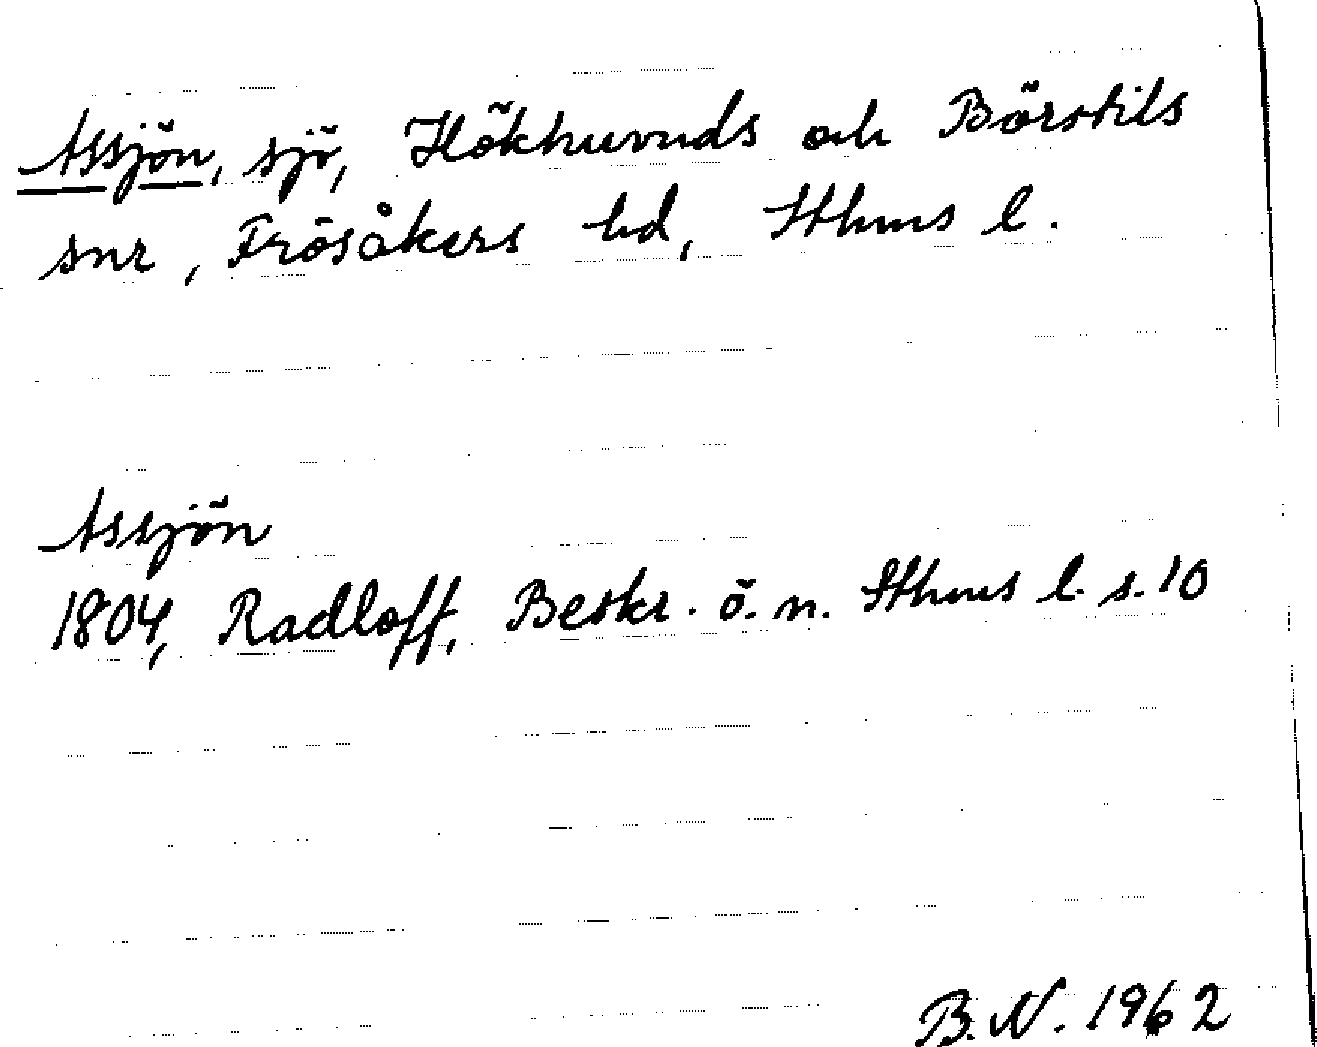 Assjön, sjö, Hökhuvuds och Börstils
snr, Frösåkers hd, Sthms l.
Assjön
1804, Radloff, Beskr. ö. n. Sthms l. s. 10
B.N. 1962